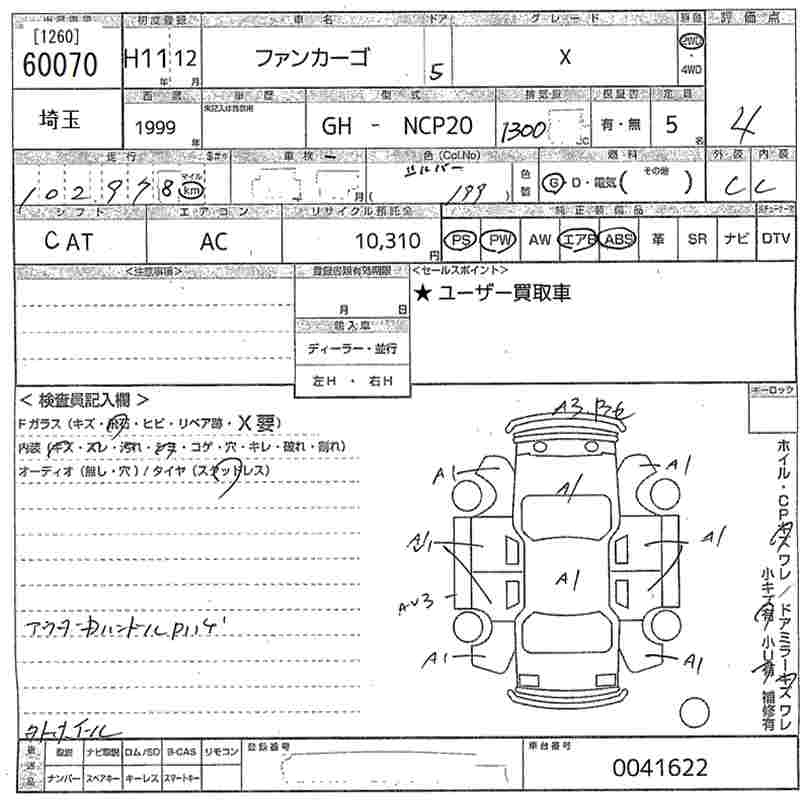 初度登録 車名 ドア グレード 評価点
[1260]
60070 H11 12 ファンカーゴ 5 X 2WD
年 月 4WD
西暦 車歴 型式 排気量 保証書 定員
埼玉 1999 年 GH - NCP20 1300 CC 有・無 5 名 4
走行 車検 色(Col.No) 燃料 外装 内装
102978 マイル km 月 シルバー (199) 色替 G・D・電気( その他 ) C C
シフト エアコン リサイクル預託金 純正装備品
CAT AC 10,310 円 PS PW AW エアB ABS 革 SR ナビ DTV
<注意事項> 登録書類有効期限 <セールスポイント>
月 日 ★ ユーザー買取車
輸入車
ディーラー・並行
左H・右H
< 検査員記入欄 > キーロック
Fガラス(キズ・飛石・ヒビ・リペア跡・X要)
内装(キズ・スレ・汚れ・シミ・コゲ・穴・キレ・破れ・割れ)
オーディオ(無し・穴)/タイヤ(スタッドレス)
A3.B6
A1 A1 A1
A1 A1 A1
A1 A1
ホイル・CPキズワレ/ドアミラーキズワレ
小キズ有 小U有 補修有
登録番号 車台番号
取説 ナビ取説 ロム/SD B-CAS リモコン
ナンバー スペアキー キーレス スマートキー 0041622